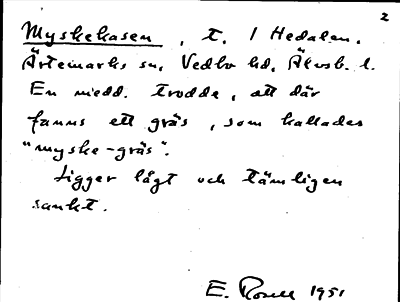 2
Myskekasen, t. I Hedalen.
Ärtemarks sn, Vedbo hd, Älvsb. l.
En medd. trodde, att där
fanns ett gräs, som kallades
"myske-gräs".
Ligger lågt och tämligen
sankt.
E. Rosell 1951